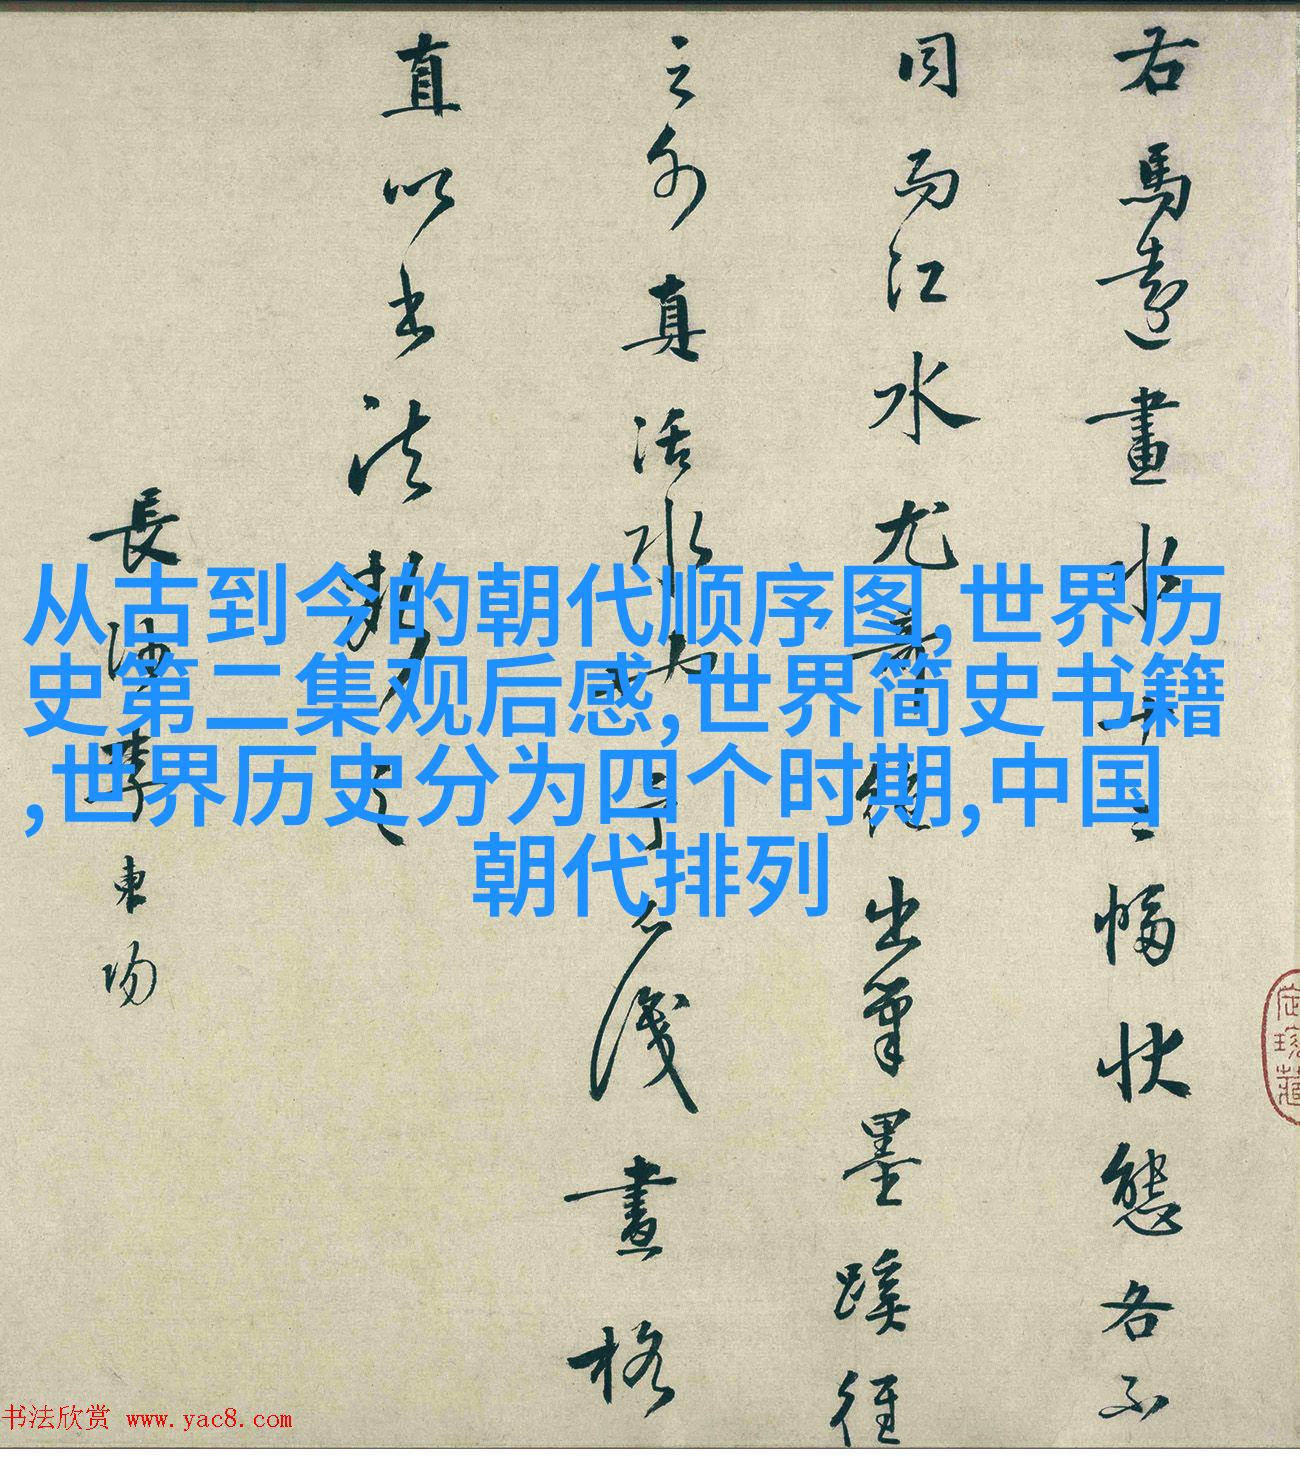 右馬遠畫水十二幅狀態各不
同而江水尤奇絕出筆墨蹊徑
之外真活水也予不識畫格
直以書法之
長沙李東陽
从古到今的朝代顺序图,世界历
史第二集观后感,世界简史书籍
,世界历史分为四个时期,中国
朝代排列
珍藏
书法欣赏 www.yac8.com